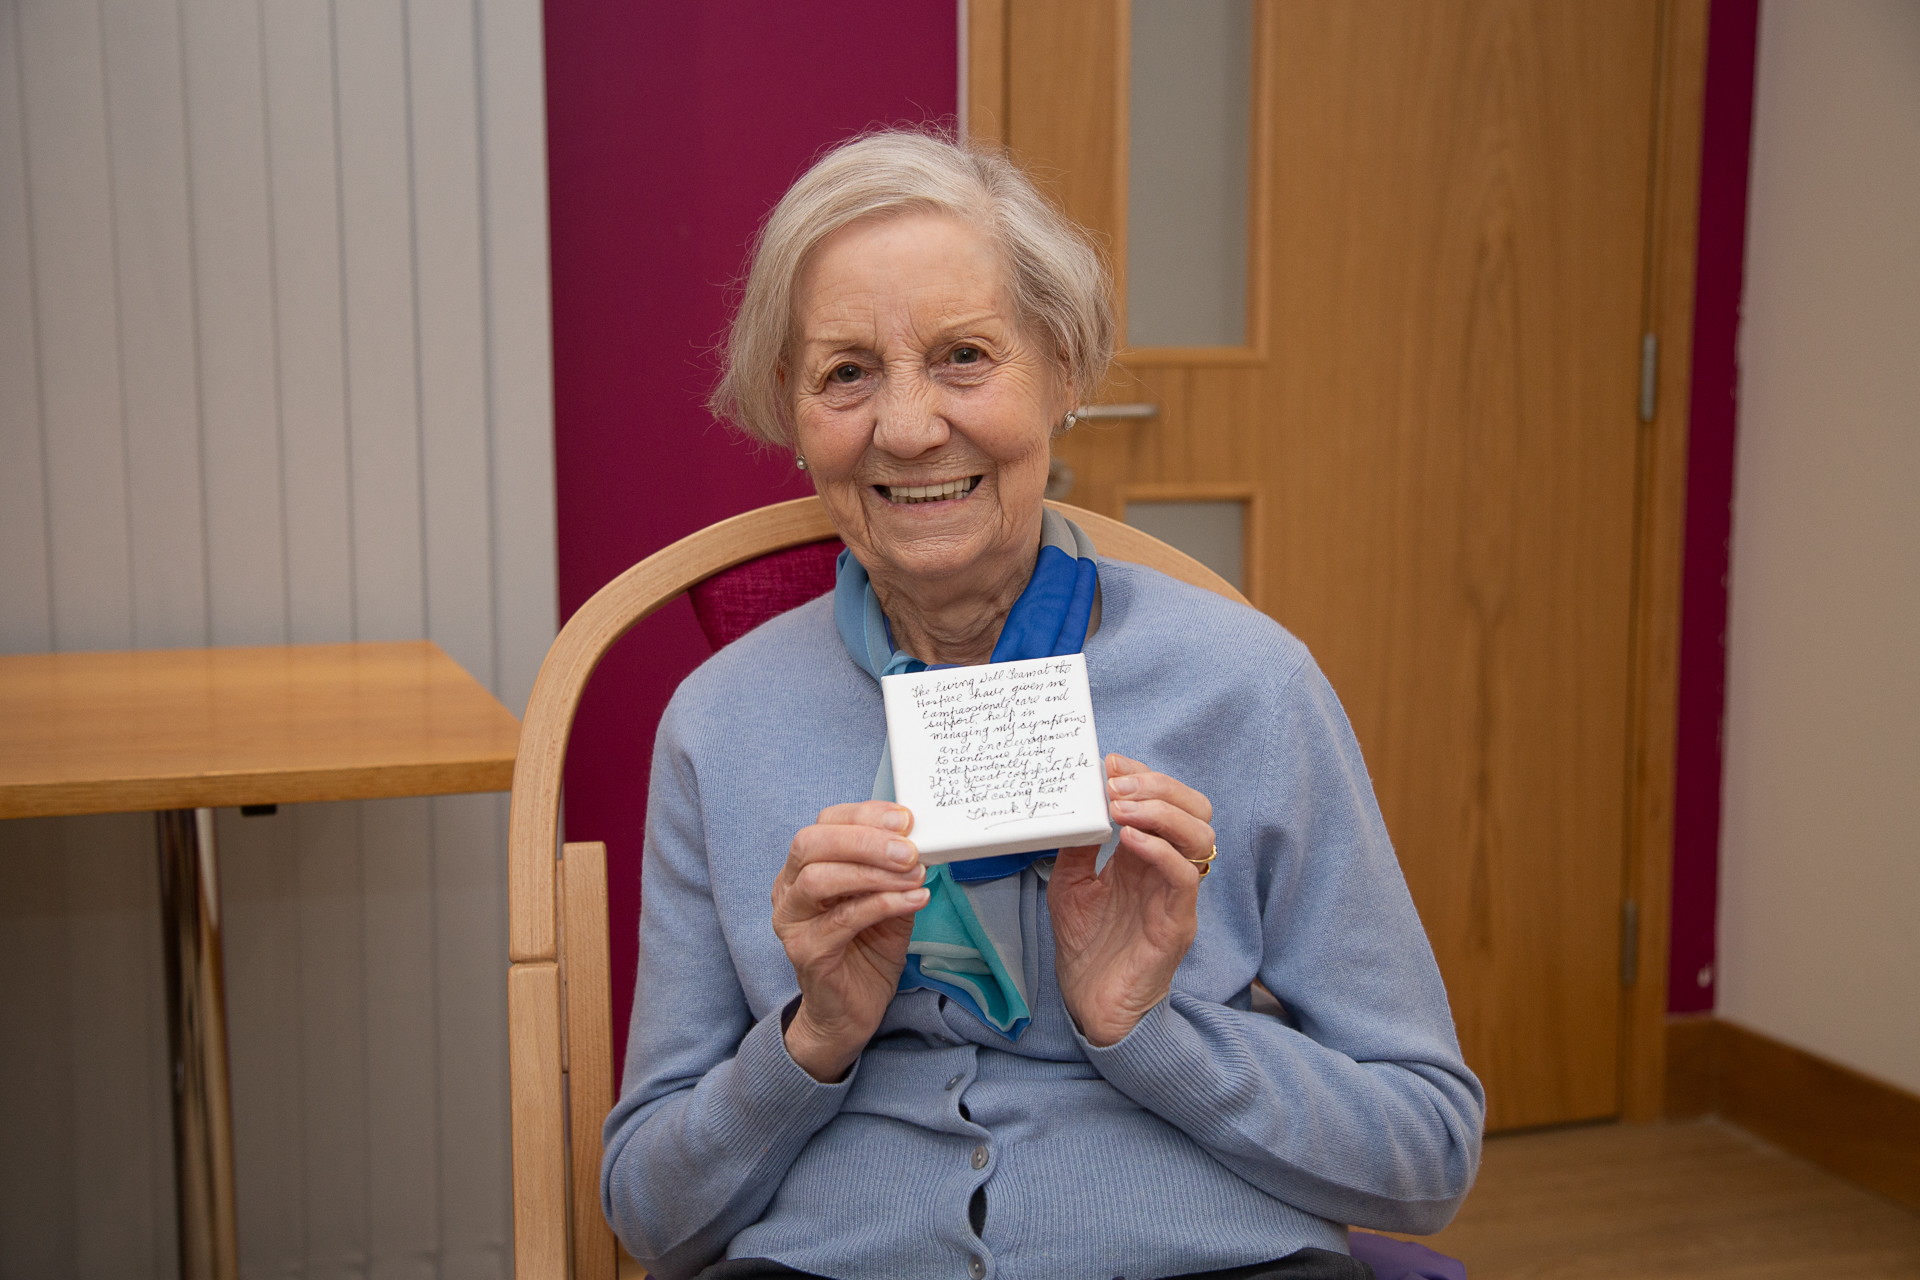 The Living Well Team at the
Hospice have given me
compassionate care and
support, help in
managing my symptoms
and encouragement
to continue living
independently.
It is great comfort to be
able to call on such a
dedicated caring team
Thank You.